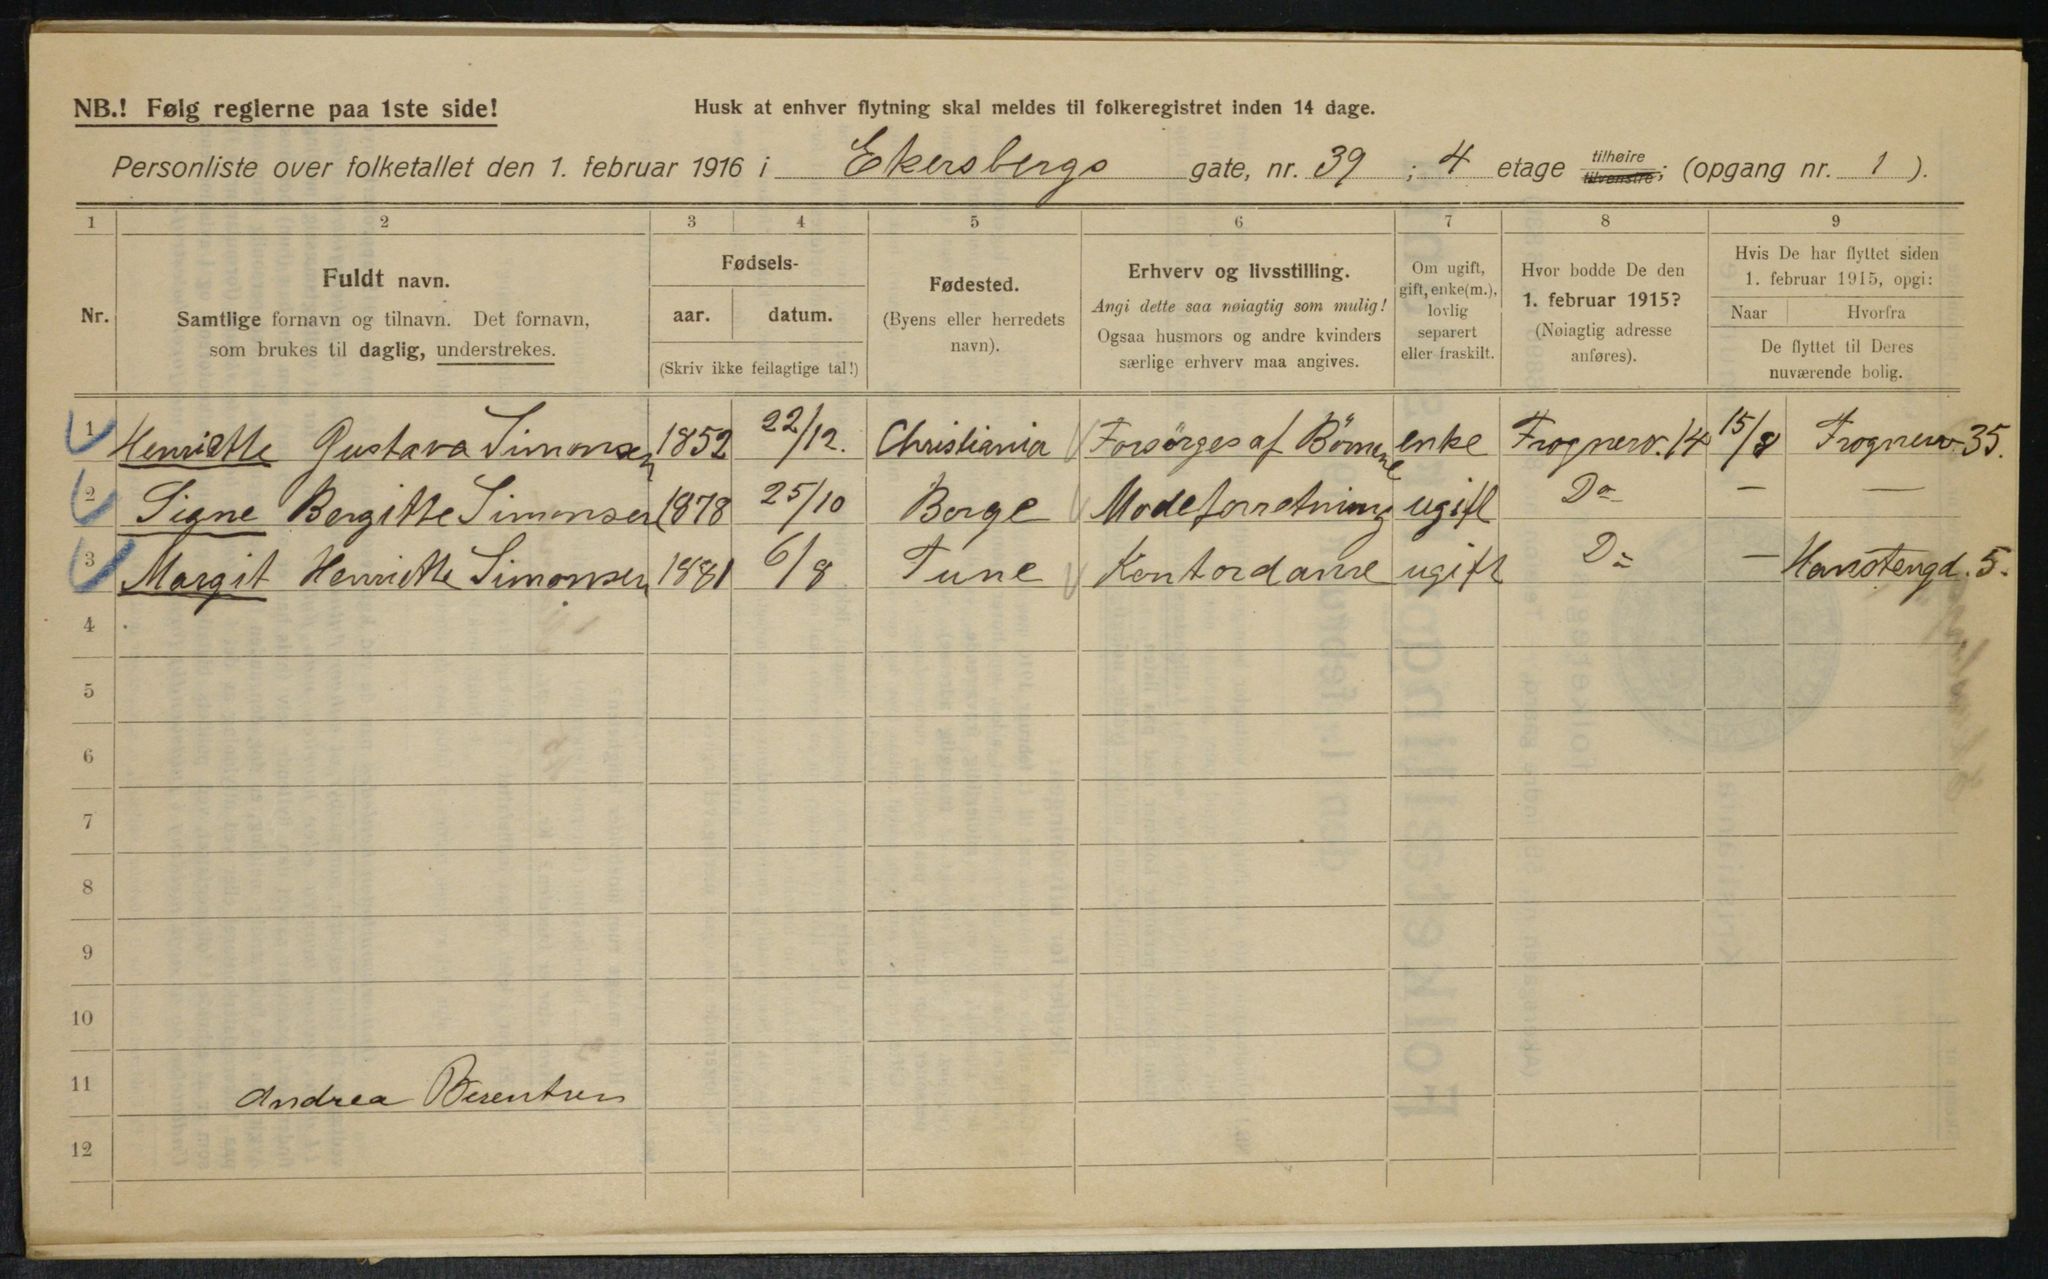 NB.! Følg reglerne paa 1ste side!
Husk at enhver flytning skal meldes til folkeregistret inden 14 dage.
Personliste over folketallet den 1. februar 1916 i Ekersbergs gate, nr. 39; 4 etage tilhøire tilvenstre; (opgang nr. 1).
1 2 3 4 5 6 7 8 9
Nr.
Fuldt navn.
Samtlige fornavn og tilnavn. Det fornavn,
som brukes til daglig, understrekes.
Fødsels-
aar. datum.
(Skriv ikke feilagtige tal!)
Fødested.
(Byens eller herredets
navn).
Erhverv og livsstilling.
Angi dette saa nøiagtig som mulig!
Ogsaa husmors og andre kvinders
særlige erhverv maa angives.
Om ugift,
gift, enke(m.),
lovlig
separert
eller fraskilt.
Hvor bodde De den
1. februar 1915?
(Nøiagtig adresse
anføres).
Hvis De har flyttet siden
1. februar 1915, opgi:
Naar Hvorfra
De flyttet til Deres
nuværende bolig.
1 Henriette Gustava Simonsen 1852 22/12. Christiania Forsörges af Börnene enke Frognerv. 14 15/8 Frognerv. 35.
2 Signe Bergitte Simonsen 1878 25/10 Borge Modeforretning ugift Do — —
3 Margit Henriette Simonsen 1881 6/8 Tune Kontordame ugift Do — 5.
4
5
6
7
8
9
10
11 Andrea Berentsen
12